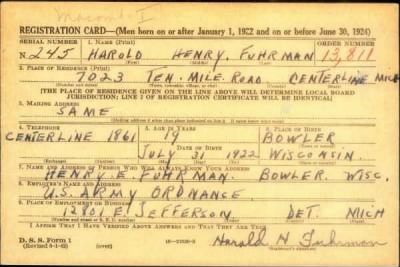 REGISTRATION CARD—(Men born on or after January 1, 1922 and on or before June 30, 1924)
SERIAL NUMBER 1. NAME (Print) ORDER NUMBER
N 245 HAROLD HENRY, FUHRMAN 13,811
2. PLACE OF RESIDENCE (Print)
7023 TEN-MILE-ROAD CENTERLINE MICH
[THE PLACE OF RESIDENCE GIVEN ON THE LINE ABOVE WILL DETERMINE LOCAL BOARD
JURISDICTION; LINE 2 OF REGISTRATION CERTIFICATE WILL BE IDENTICAL]
3. MAILING ADDRESS
SAME
4. TELEPHONE 5. AGE IN YEARS 6. PLACE OF BIRTH
CENTERLINE 1861 19 BOWLER
DATE OF BIRTH
JULY 31 1922 WISCONSIN.
7. NAME AND ADDRESS OF PERSON WHO WILL ALWAYS KNOW YOUR ADDRESS
HENRY. E. FUHRMAN BOWLER. WISC.
8. EMPLOYER'S NAME AND ADDRESS
U.S. ARMY ORDNANCE
9. PLACE OF EMPLOYMENT OR BUSINESS
E. JEFFERSON DET. MICH
I AFFIRM THAT I HAVE VERIFIED ABOVE ANSWERS AND THAT THEY ARE TRUE.
D. S. S. Form 1 (over) Harold H Fuhrman